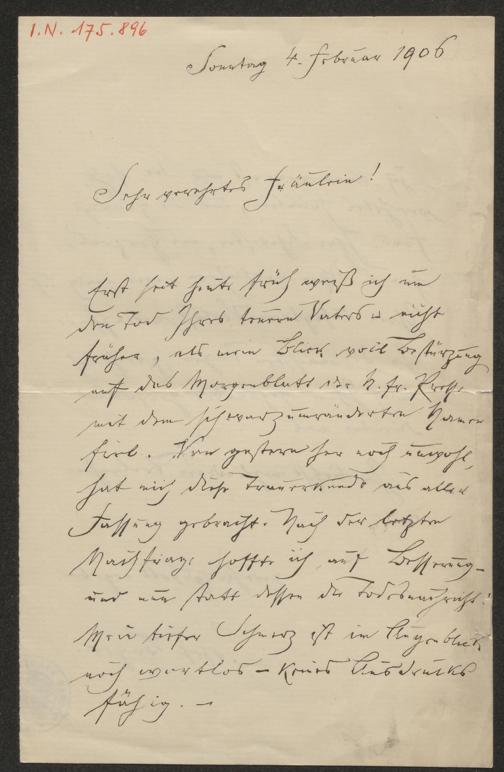 I.N. 175.896
Sonntag 4. Februar 1906
Sehr verehrtes Fräulein!
Erst seit heute früh weiß ich um
den Tod Ihres teuren Vaters – nicht
früher, als mein Blick voll Bestürzung
auf das Morgenblatt der N. fr. Presse
mit dem schwarzumränderten Namen
fiel. Von gestern her noch unwohl,
hat mich diese Trauerkunde aus aller
Fassung gebracht. Nach der letzten
Nachfrage hoffte ich auf Besserung –
und nun statt dessen die Todesnachricht!
Mein tiefer Schmerz ist im Augenblick
noch wortlos – keines Ausdrucks
fähig. –